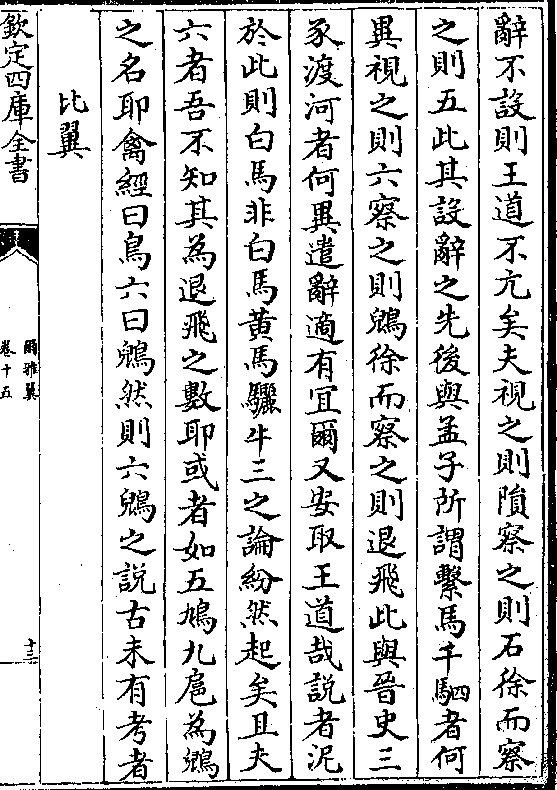 辭不設則王道不亢矣夫視之則隕察之則石徐而察
之則五此其設辭之先後與孟子所謂繫馬千駟者何
異視之則六察之則鶂徐而察之則退飛此與晉史三
豕渡河者何異遣辭適有宜爾又安取王道哉說者泥
於此則白馬非白馬黃馬驪牛三之論紛然起矣且夫
六者吾不知其為退飛之數耶或者如五鳩九扈為鶂
之名耶禽經曰鳥六曰鶂然則六鶂之說古未有考者
比翼
欽定四庫全書
爾雅翼
卷十五
十三